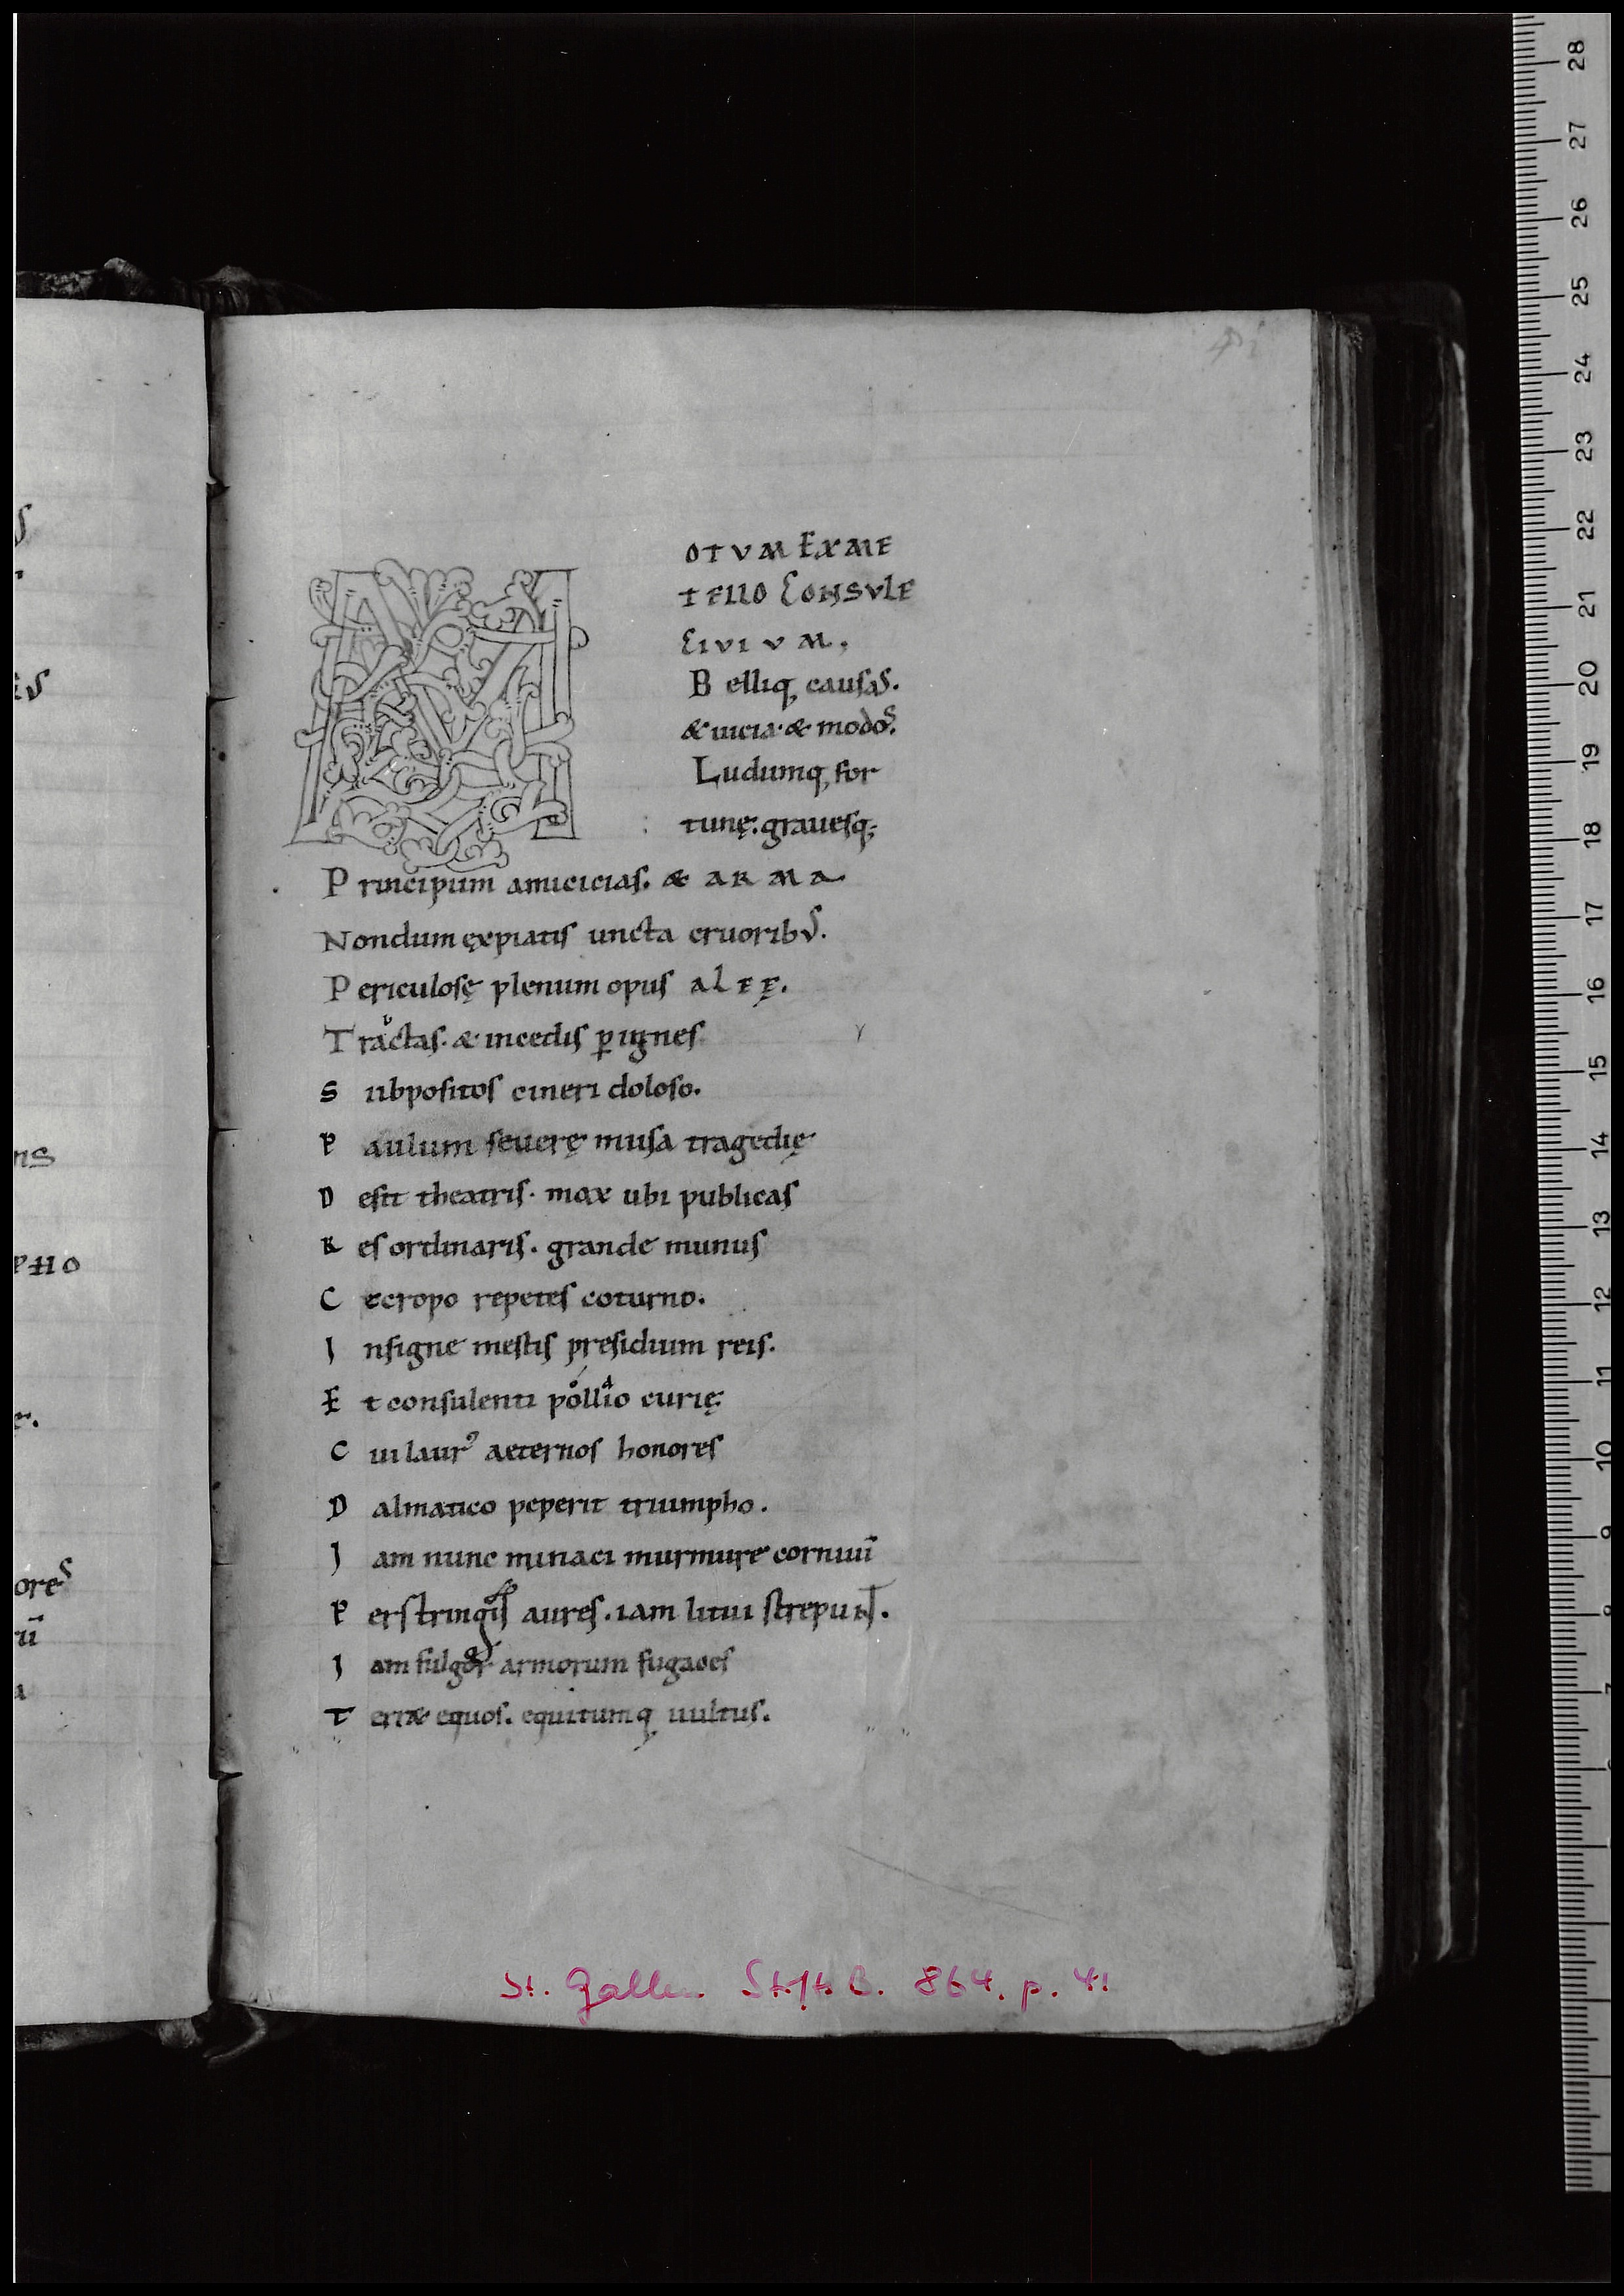 41
OTVM EXME
TELLO CONSVLE
CIVIVM,
B elliq; causas.
& uicia. & modos.
Ludumq; for
tunę. grauesq;
P rincipum amicicias. & ARMA
Nondum expiatis uncta cruoribus.
P ericulosę plenum opus ALEĘ.
T ractas. & incedis p ignes
S ubpositos cineri doloso.
P aulum seuerę musa tragedię
D esit theatris. mox ubi publicas
R es ordinaris. grande munus
C ecropo repetes coturno.
I nsigne mestis presidium reis.
E t consulenti pollio curię
C ui laur⁹ aeternos honores
D almatico peperit triumpho.
I am nunc minaci murmure cornuū
P erstringis aures. iam litui strepunt.
I am fulgor armorum fugaces
T erræ equos. equitumq; uultus.
St. Gallen StiftB. 864. p. 41
ES
ns
PHO
ore
28
27
26
25
24
23
22
21
20
19
18
17
16
15
14
13
12
11
10
9
8
7